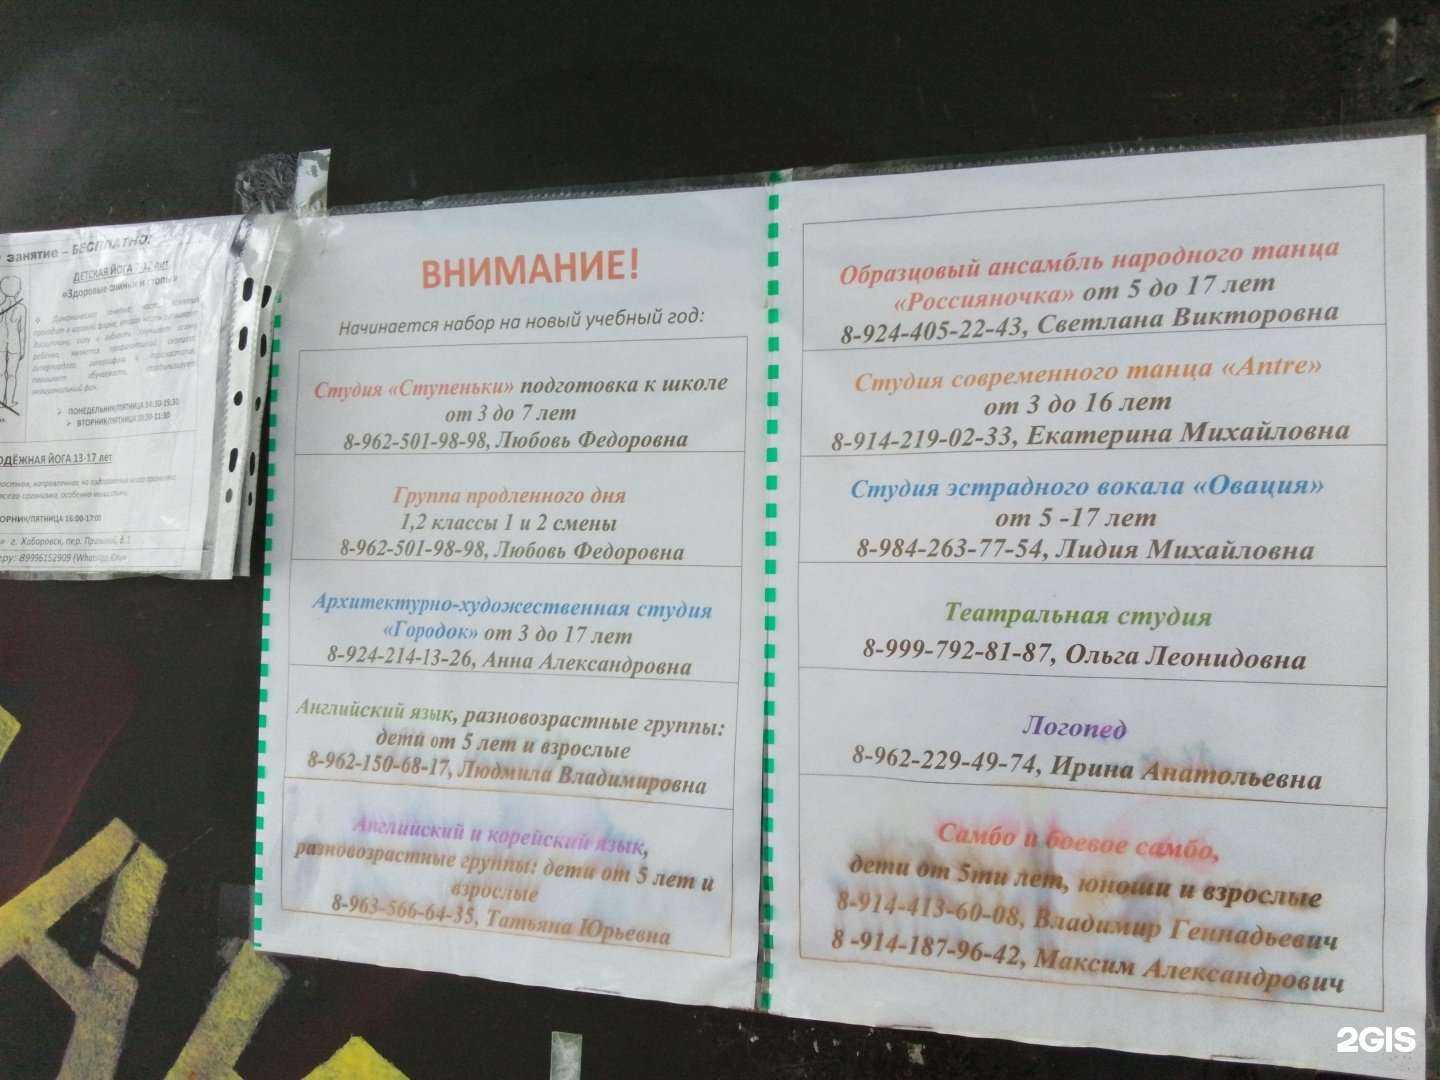 занятие – БЕСПЛАТНО!
ДЕТСКАЯ ЙОГА 7-12 лет
ПОНЕДЕЛЬНИК/ПЯТНИЦА
ВТОРНИК/ПЯТНИЦА 10:30-11:30
ОДЁЖНАЯ ЙОГА 13-17 лет
ОРНИК/ПЯТНИЦА 16:00-17:00
г. Хабаровск, пер.
еру: 89996152909 (WhatsApp
ВНИМАНИЕ!
Начинается набор на новый учебный год:
Студия «Ступеньки» подготовка к школе
от 3 до 7 лет
8-962-501-98-98, Любовь Федоровна
Группа продленного дня
1,2 классы 1 и 2 смены
8-962-501-98-98, Любовь Федоровна
Архитектурно-художественная студия
«Городок» от 3 до 17 лет
8-924-214-13-26, Анна Александровна
Английский язык, разновозрастные группы:
дети от 5 лет и взрослые
8-962-150-68-17, Людмила Владимировна
Английский и корейский язык,
разновозрастные группы: дети от 5 лет и
взрослые
8-963-566-64-35, Татьяна Юрьевна
Образцовый ансамбль народного танца
«Россияночка» от 5 до 17 лет
8-924-405-22-43, Светлана Викторовна
Студия современного танца «Antre»
от 3 до 16 лет
8-914-219-02-33, Екатерина Михайловна
Студия эстрадного вокала «Овация»
от 5 -17 лет
8-984-263-77-54, Лидия Михайловна
Театральная студия
8-999-792-81-87, Ольга Леонидовна
Логопед
8-962-229-49-74, Ирина Анатольевна
Самбо и боевое самбо,
дети от 5ти лет, юноши и взрослые
8-914-413-60-08, Владимир Геннадьевич
8 -914-187-96-42, Максим Александрович
2GIS